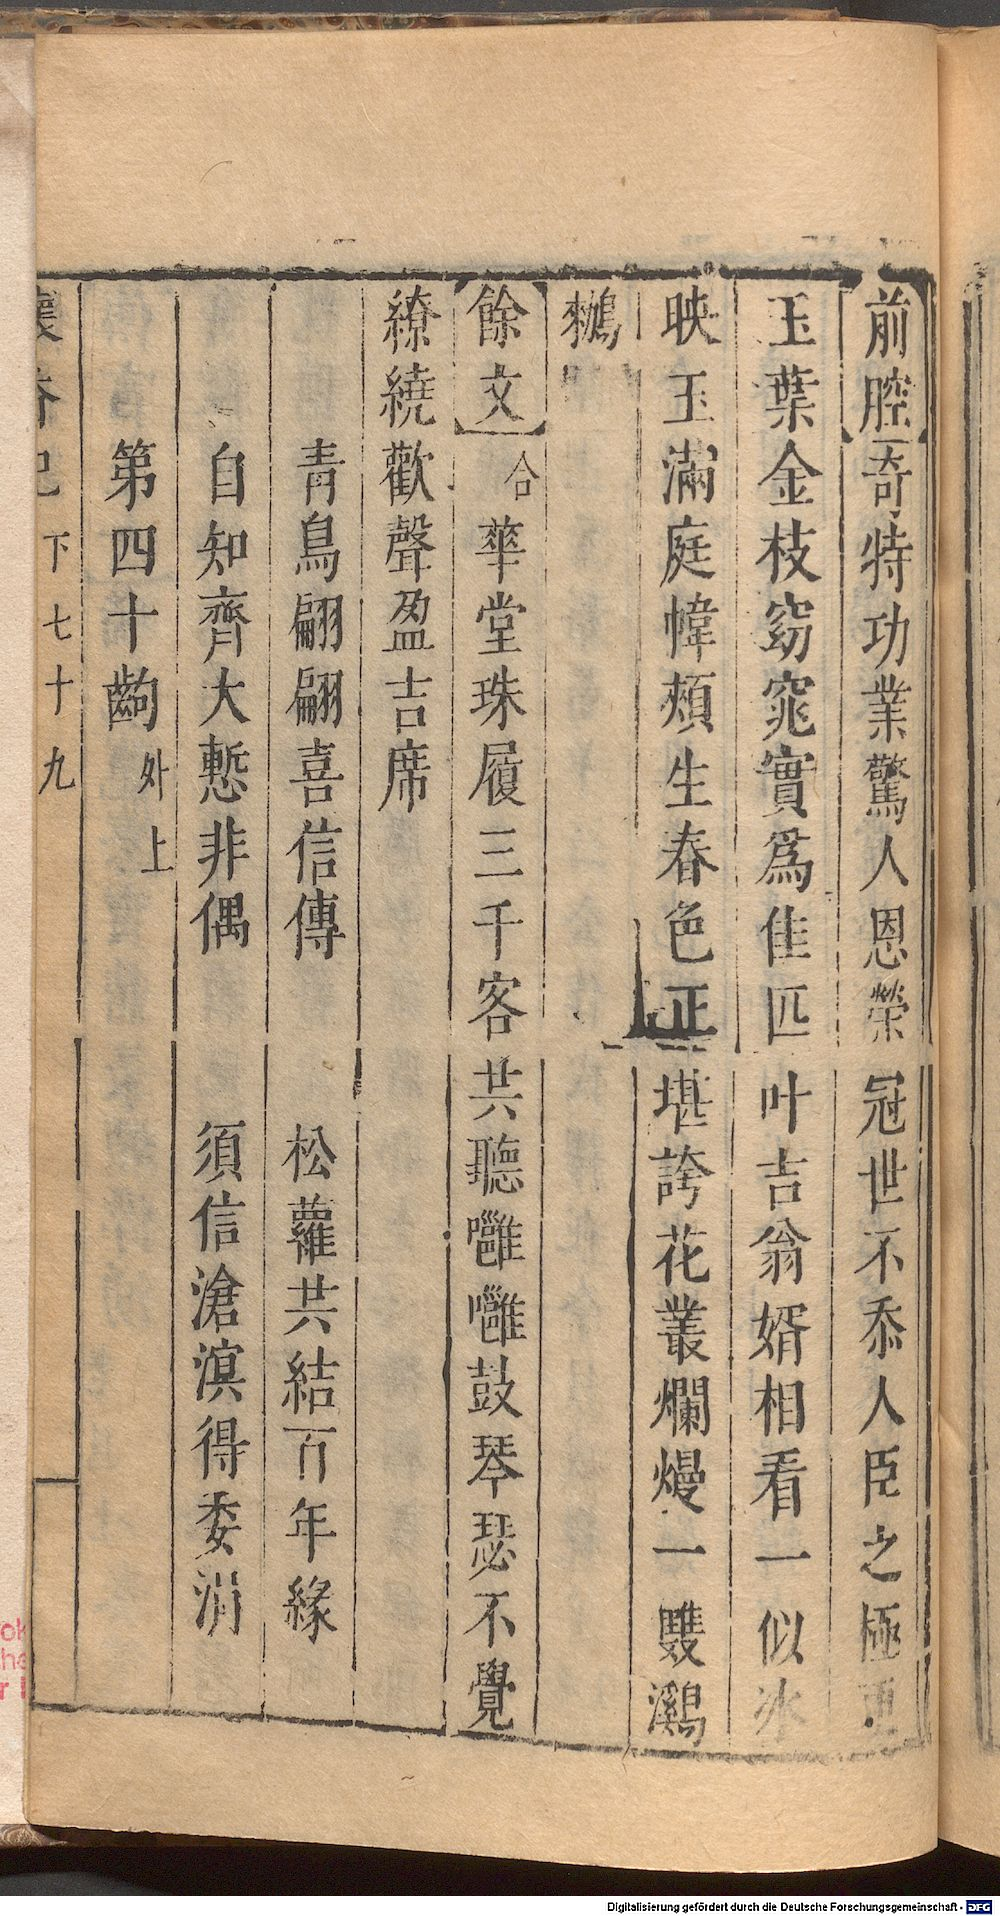 前腔奇特功業驚人恩榮冠世不忝人臣之極更
玉葉金枝窈窕實爲佳匹叶吉翁婿相看一似冰
映玉滿庭幃頰生春色正堪誇花叢爛熳一雙鸂
鶒
餘文合華堂珠履三千客共聽嗈嗈鼓琴瑟不覺
繚繞歡聲盈吉席
青鳥翩翩喜信傳 松蘿共結百年緣
自知齊大慙非偶 須信滄溟得委涓
第四十齣外上
懷香記下七十九
Digitalisierung gefördert durch die Deutsche Forschungsgemeinschaft - DFG